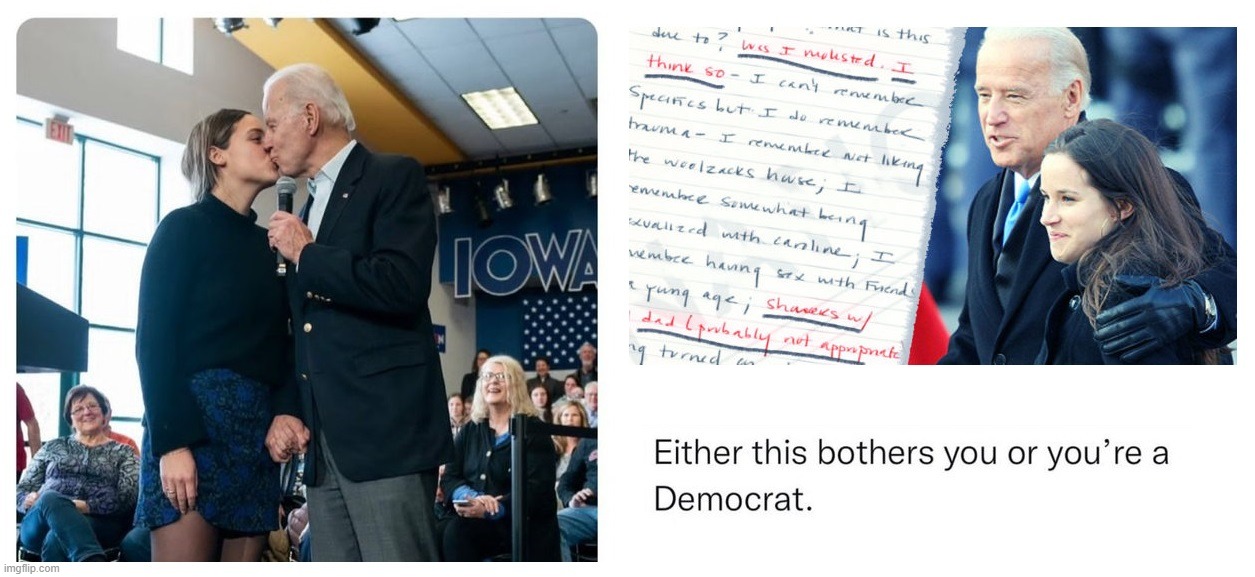 EXIT
IOWA
due to? is this
was I molested. I
think so - I can't remember
specifics but I do remember
trauma - I remember not liking
the woolzacks house; I
emember somewhat being
exualized with caroline; I
member having sex with Friends
young age; showers w/
dad (probably not appropriate
ng turned
Either this bothers you or you're a
Democrat.
imgflip.com